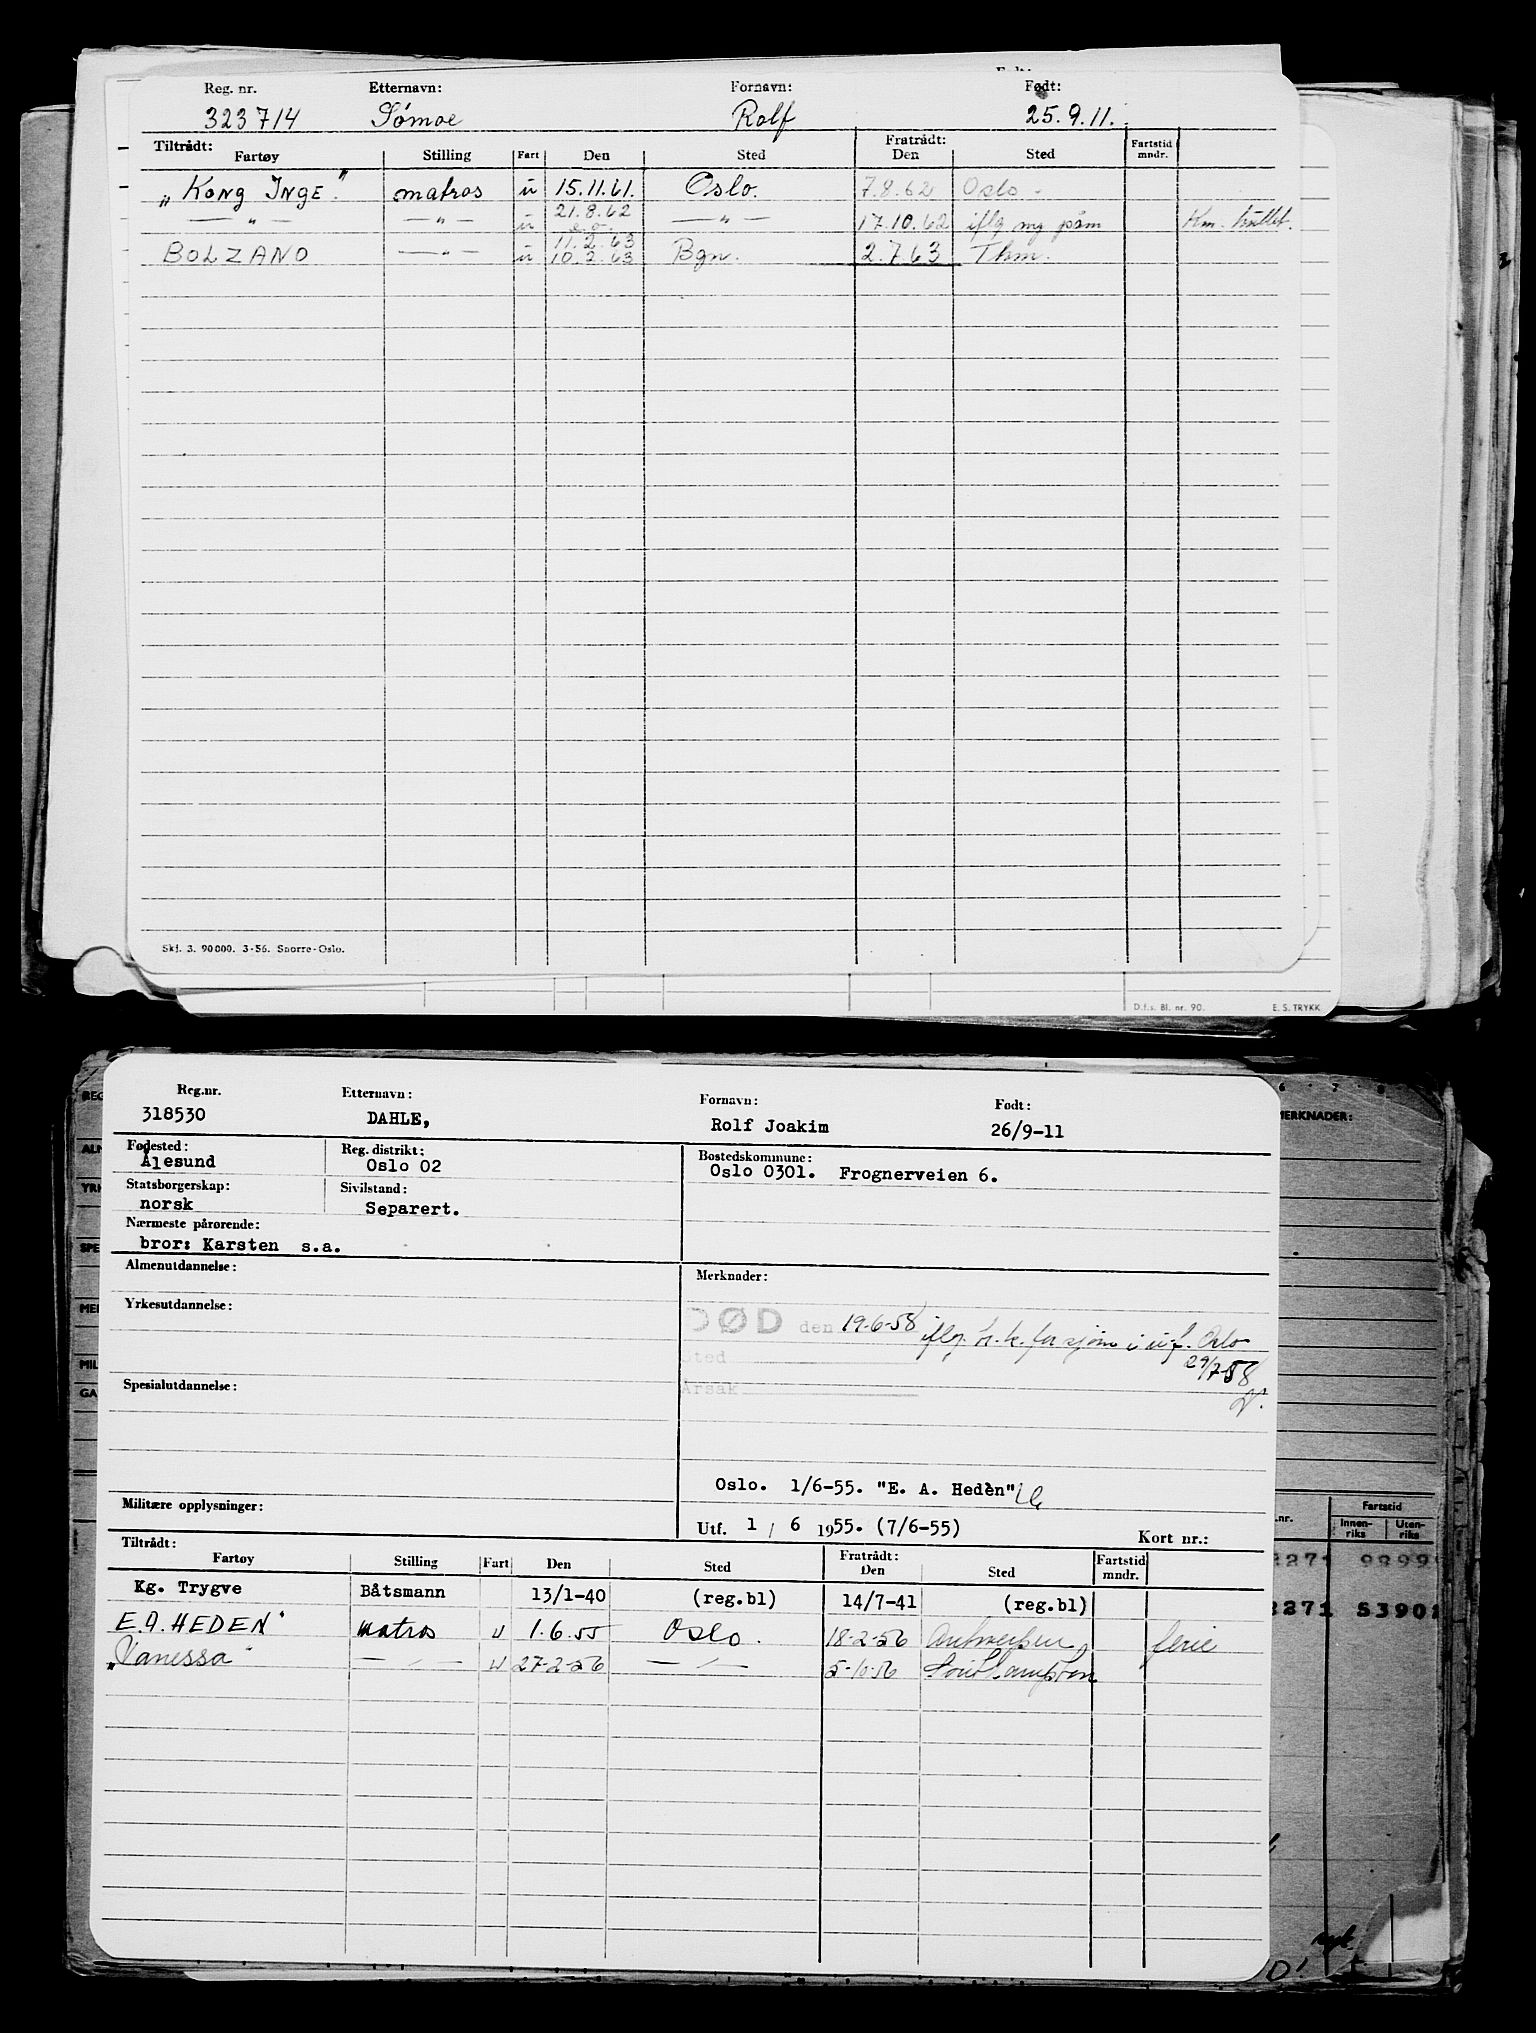 Reg. nr. Etternavn: Fornavn: Født:
323714 Sømoe Rolf 25.9.11.
Tiltrådt: Fratrådt: Fartstid
Fartøy Stilling Fart Den Sted Den Sted mndr.
„Kong Inge" matros u 15.11.61. Oslo. 7.8.62 Oslo.
— " — — " — u 21.8.62 — " — 17.10.62 iflg my påm Km.
e.o.
11.2.63
BOLZANO — " — u 10.2.63 Bgn. 2.7.63 Thm.
Skj. 3. 90000. 3-56. Snorre-Oslo.
D.f.s. Bl. nr. 90. E. S. TRYKK
Reg.nr. Etternavn: Fornavn: Født:
318530 DAHLE, Rolf Joakim 26/9-11
MERKNADER:
Fødested: Reg. distrikt: Bostedskommune:
Ålesund Oslo 02 Oslo 0301. Frognerveien 6.
Statsborgerskap: Sivilstand:
norsk Separert.
Nærmeste pårørende:
bror: Karsten s.a.
Almenutdannelse: Merknader:
Yrkesutdannelse:
DØD den 19-6-58 iflg. for sjøm i u.f. Oslo
Sted 29/7-58
Årsak
Spesialutdannelse:
Oslo. 1/6-55. "E. A. Hedèn"
Militære opplysninger:
Utf. 1 / 6 1955. (7/6-55) Kort nr.:
Tiltrådt: Fratrådt: Fartstid
Fartøy Stilling Fart Den Sted Den Sted mndr.
Kg. Trygve Båtsmann 13/1-40 (reg.bl) 14/7-41 (reg.bl)
E.A. HEDEN" matros u 1.6.55 Oslo. 18-2-56 Antwerpen ferie
„Vanessa" — " — u 27-2-56 — " — 5-10-56 Southampton
Fartstid
.nr. Innen-riks Uten-riks
2271 9999
2271 S3901